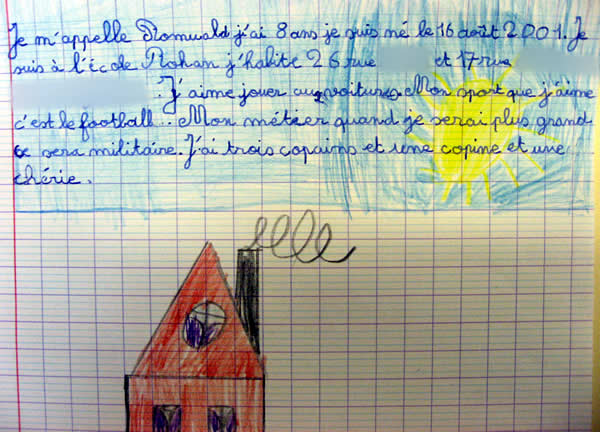 Je m'appelle Romuald j'ai 8 ans je suis né le 16 août 2001. Je
suis à l'école Rohan j'habite 26 rue et 17 rue
. J'aime jouer aux voitures. Mon sport que j'aime
c'est le football... Mon métier quand je serai plus grand
ce sera militaire. J'ai trois copains et une copine et une
chérie.